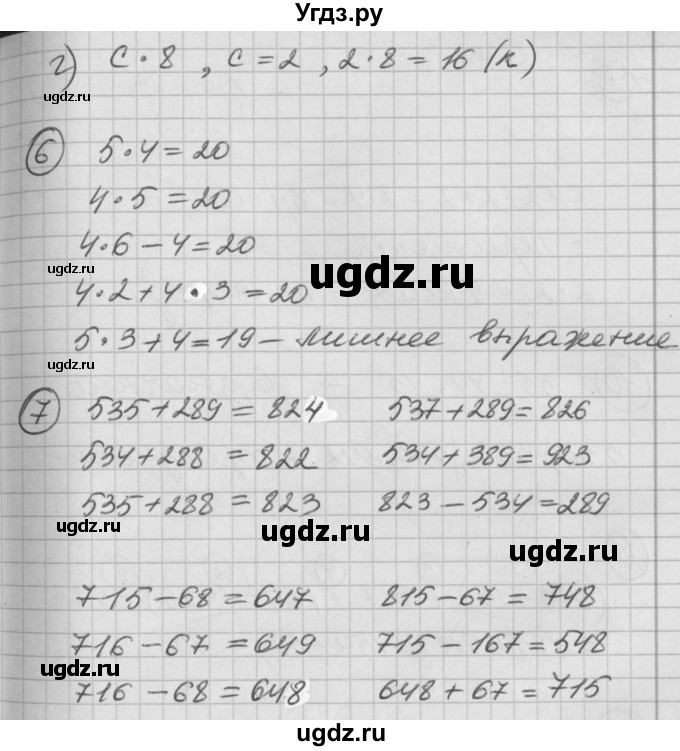 Угдз.ру
г) c · 8 , c = 2 , 2 · 8 = 16 (к)
ugdz.ru
6 5 · 4 = 20
4 · 5 = 20
4 · 6 – 4 = 20
ugdz.ru
ugdz.ru
4 · 2 + 4 · 3 = 20
5 · 3 + 4 = 19 – лишнее выражение
ugdz.ru
7 535 + 289 = 824 537 + 289 = 826
534 + 288 = 822 534 + 389 = 923
535 + 288 = 823 823 – 534 = 289
ugdz.ru
ugdz.ru
ugdz.ru
715 – 68 = 647 815 – 67 = 748
716 – 67 = 649 715 – 167 = 548
ugdz.ru
716 – 68 = 648 648 + 67 = 715
ugdz.ru
ugdz.ru